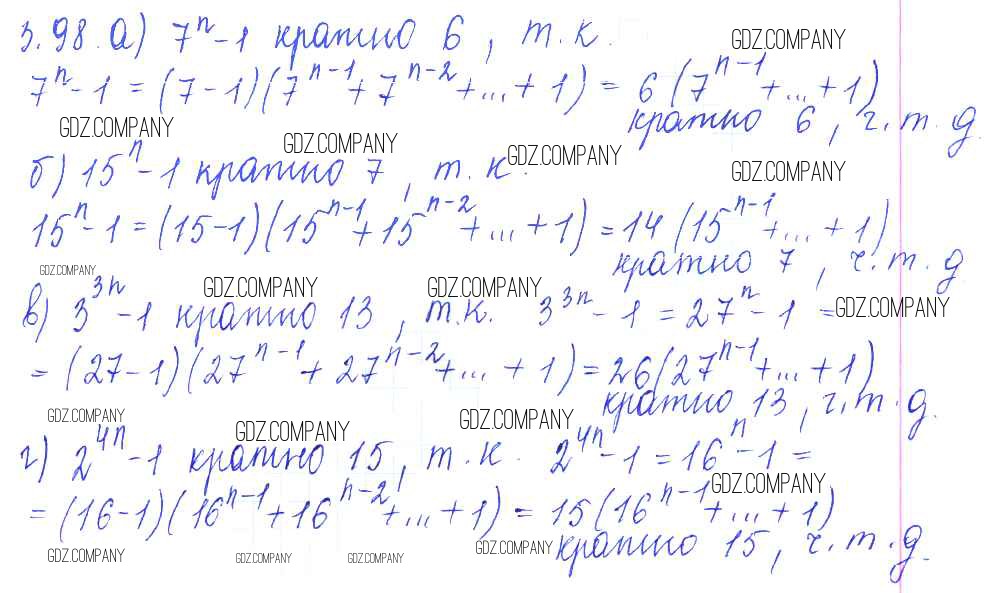 3.98. а) 7^n - 1 кратно 6, т.к. GDZ.COMPANY
7^n - 1 = (7-1)(7^{n-1} + 7^{n-2} + ... + 1) = 6(7^{n-1} + ... + 1)
GDZ.COMPANY кратно 6, ч.т.д.
GDZ.COMPANY
б) 15^n - 1 кратно 7, т.к. GDZ.COMPANY GDZ.COMPANY
15^n - 1 = (15-1)(15^{n-1} + 15^{n-2} + ... + 1) = 14(15^{n-1} + ... + 1)
GDZ.COMPANY кратно 7, ч.т.д
GDZ.COMPANY GDZ.COMPANY
в) 3^{3n} - 1 кратно 13, т.к. 3^{3n} - 1 = 27^n - 1 = GDZ.COMPANY
= (27-1)(27^{n-1} + 27^{n-2} + ... + 1) = 26(27^{n-1} + ... + 1)
GDZ.COMPANY GDZ.COMPANY кратно 13, ч.т.д.
GDZ.COMPANY
г) 2^{4n} - 1 кратно 15, т.к. 2^{4n} - 1 = 16^n - 1 =
GDZ.COMPANY
= (16-1)(16^{n-1} + 16^{n-2} + ... + 1) = 15(16^{n-1} + ... + 1)
GDZ.COMPANY GDZ.COMPANY GDZ.COMPANY GDZ.COMPANY кратно 15, ч.т.д.